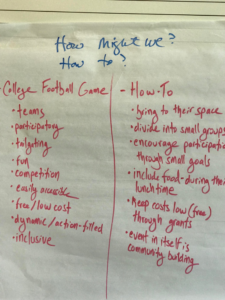 How might we?
How to?
College Football Game
• teams
• participatory
• tailgating
• fun
• competition
• easily accessible
• free/low cost
• dynamic/action-filled
• inclusive
- How-To
• tying to their space
• divide into small groups
• encourage participatio
through small goals
• include food - during thei
lunchtime
• keep costs low (free)
through grants
• event in itself is
community building